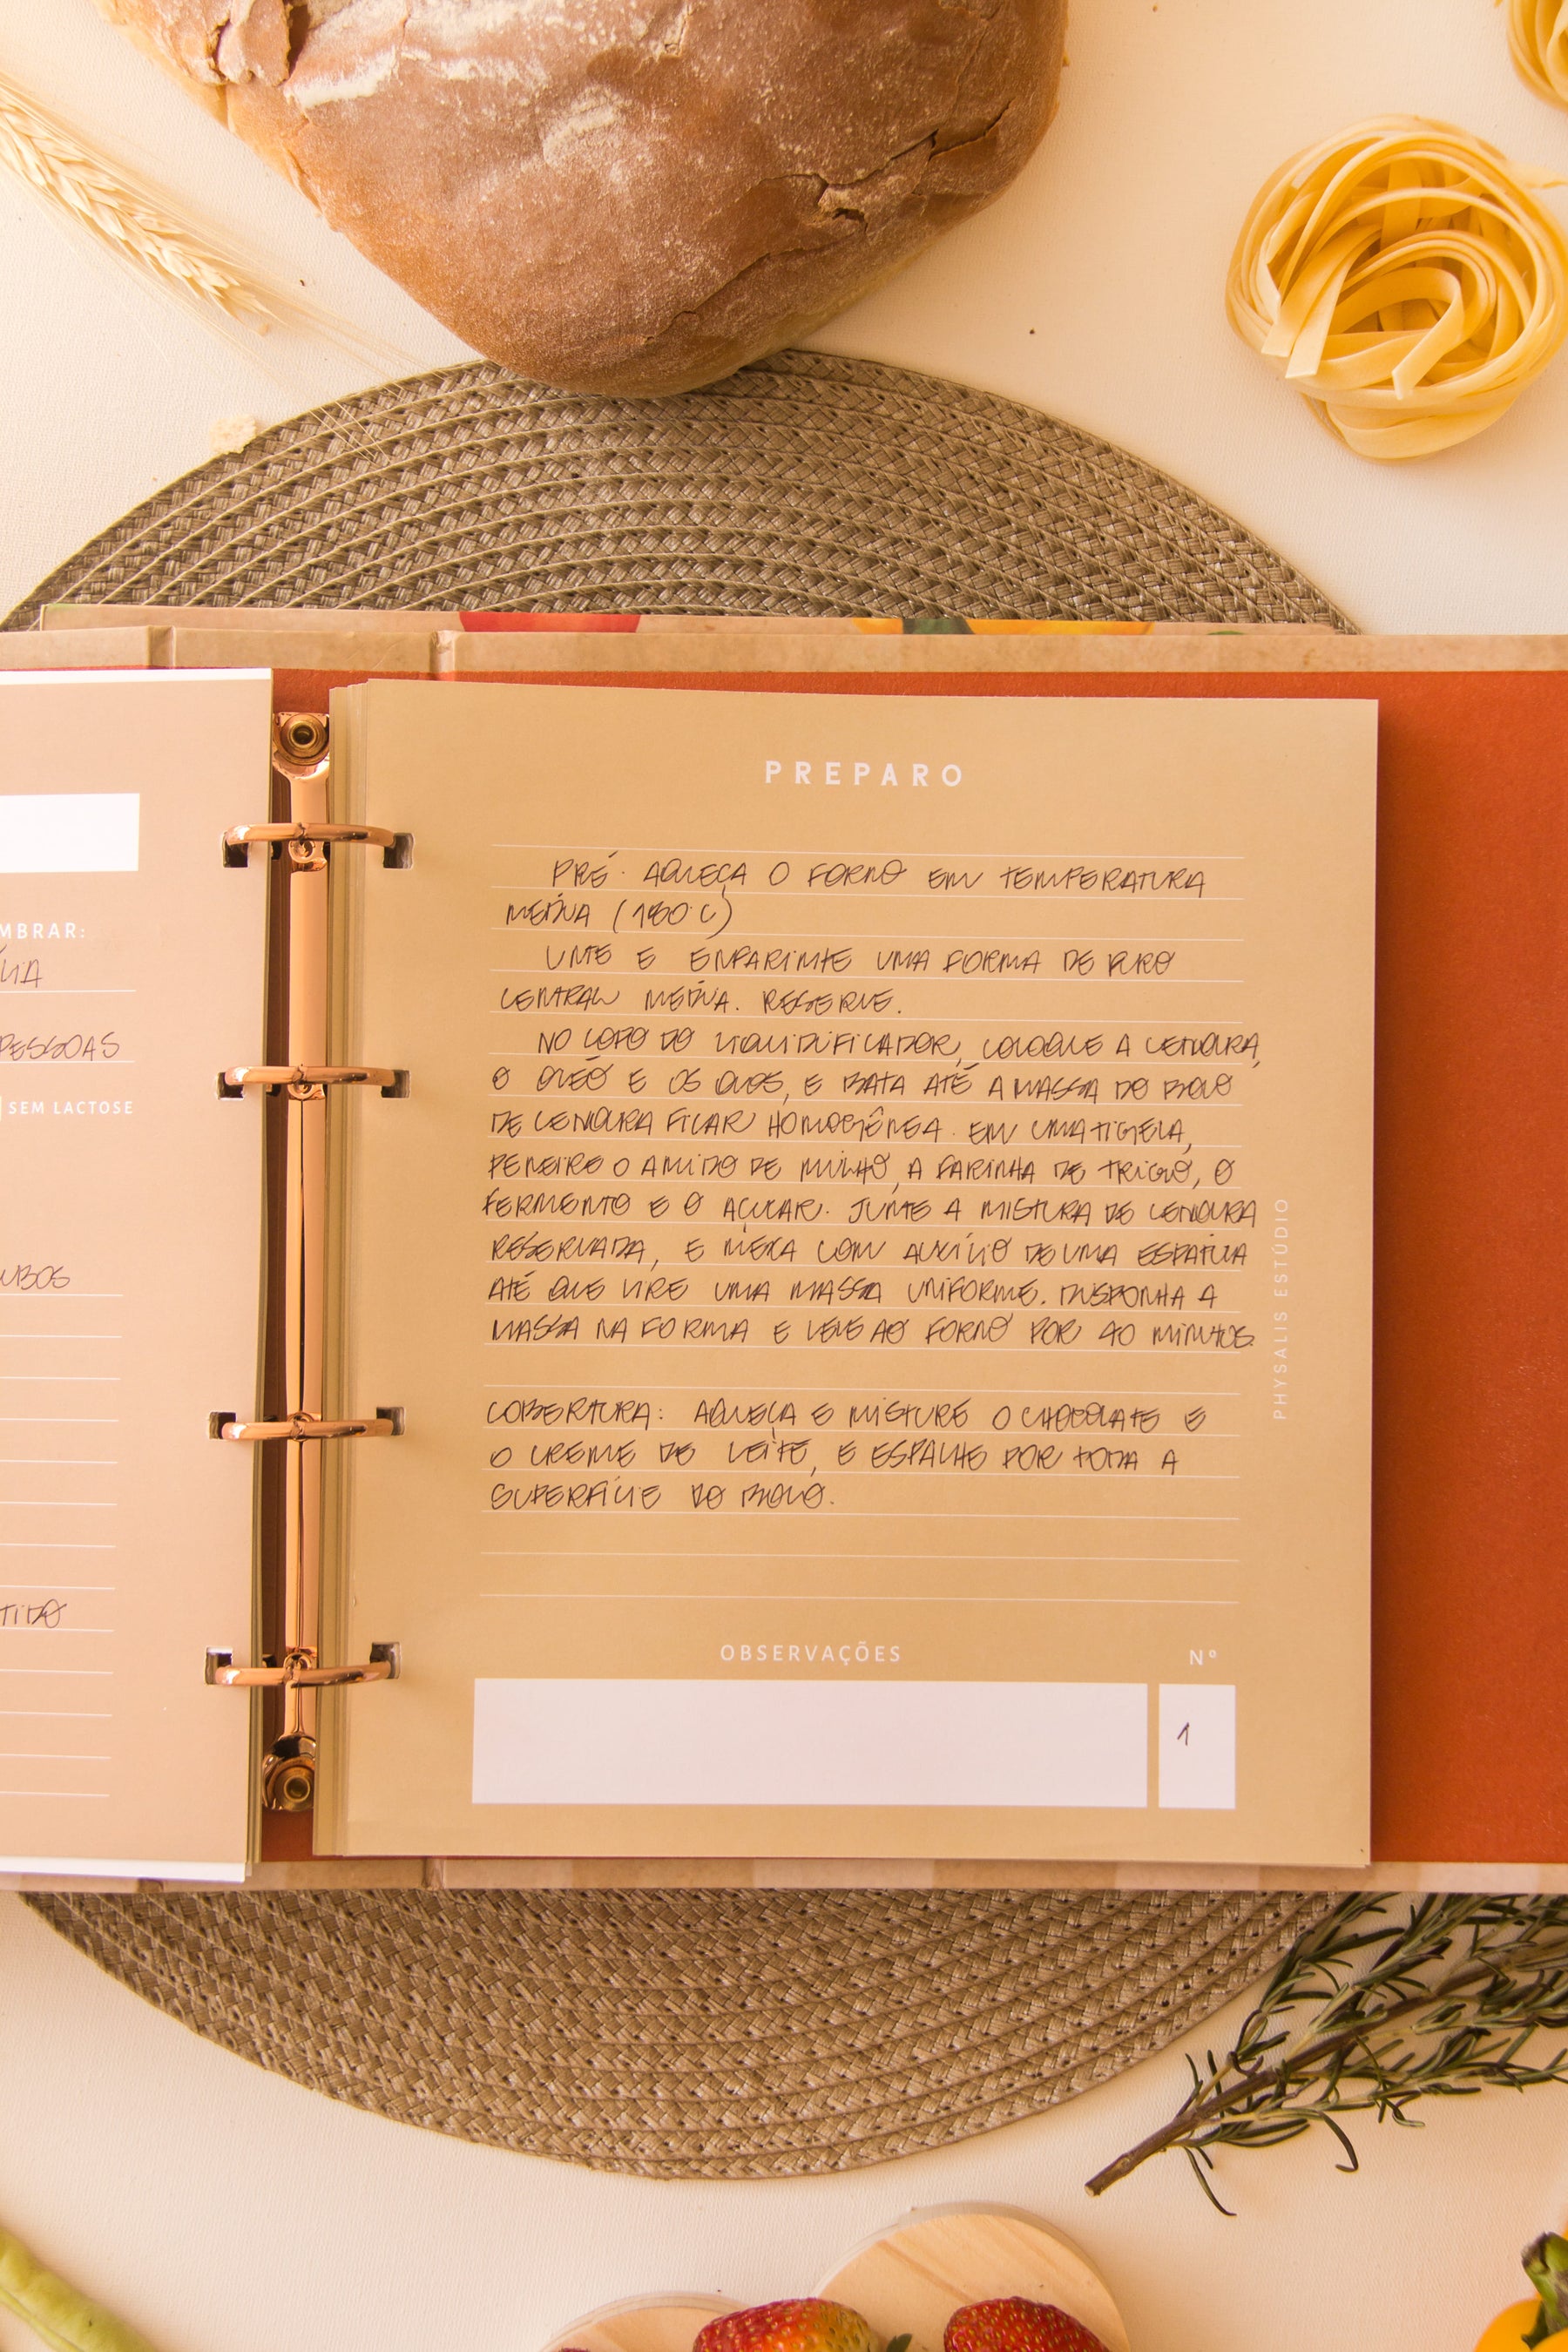 MBRAR:
PESSOAS
SEM LACTOSE
UBOS
TIDO
PREPARO
PRÉ-AQUEÇA O FORNO EM TEMPERATURA
MÉDIA (180°C)
UNTE E ENFARINHE UMA FORMA DE FURO
CENTRAL MÉDIA. RESERVE.
NO COPO DO LIQUIDIFICADOR, COLOQUE A CENOURA,
O ÓLEO E OS OVOS, E BATA ATÉ A MASSA DO BOLO
DE CENOURA FICAR HOMOGÊNEA. EM UMA TIGELA,
PENEIRE O AMIDO DE MILHO, A FARINHA DE TRIGO, O
FERMENTO E O AÇUCAR. JUNTE A MISTURA DE CENOURA
RESERVADA, E MEXA COM AUXÍLIO DE UMA ESPATULA
ATÉ QUE VIRE UMA MASSA UNIFORME. DISPONHA A
MASSA NA FORMA E LEVE AO FORNO POR 40 MINUTOS.
COBERTURA: AQUEÇA E MISTURE O CHOCOLATE E
O CREME DE LEITE, E ESPALHE POR TODA A
SUPERFÍCIE DO BOLO.
OBSERVAÇÕES
Nº
1
PHYSALIS ESTÚDIO